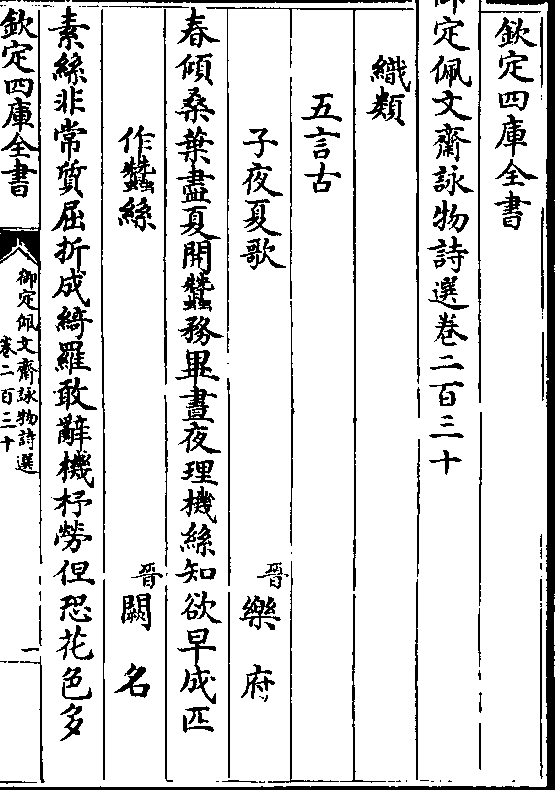 欽定四庫全書
御定佩文齋詠物詩選卷二百三十
織類
五言古
子夜夏歌 晉樂府
春傾桑葉盡夏開蠶務畢晝夜理機絲知欲早成匹
作蠶絲 晉闕名
素絲非常質屈折成綺羅敢辭機杼勞但恐花色多
欽定四庫全書
御定佩文齋詠物詩選
卷二百三十
一